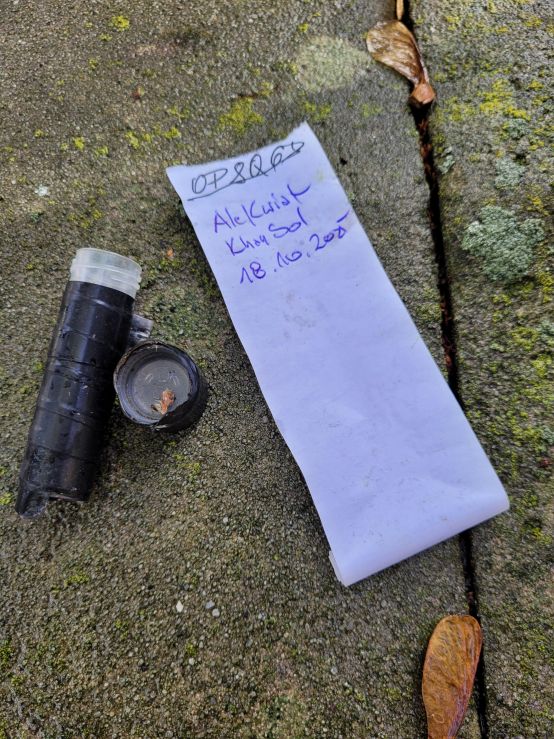 OP8Q6D
AleKwiat
KhaySol
18.10.2025